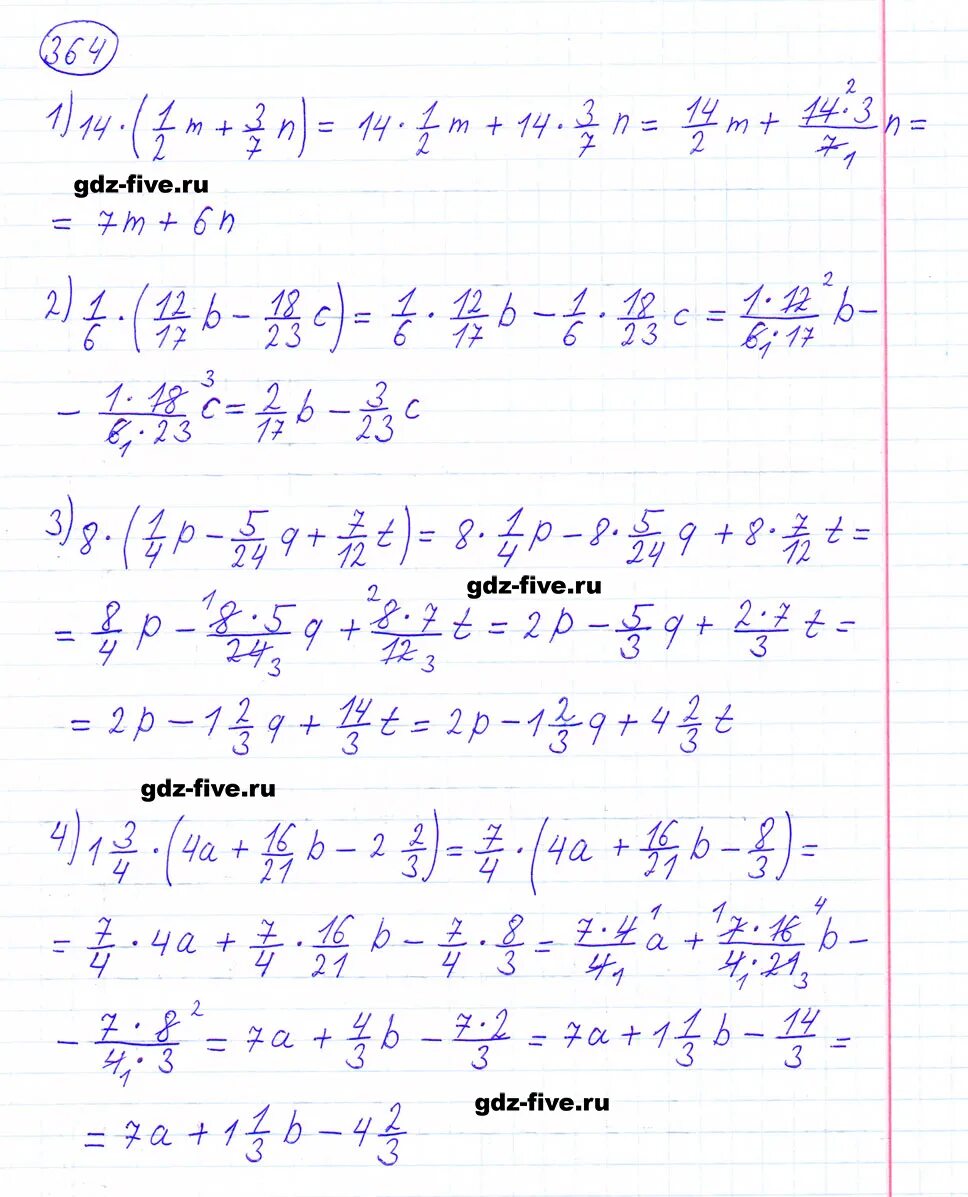 364
1) 14 · (1/2 m + 3/7 n) = 14 · 1/2 m + 14 · 3/7 n = 14/2 m + 14² · 3/7₁ n =
gdz-five.ru
= 7m + 6n
2) 1/6 · (12/17 b − 18/23 c) = 1/6 · 12/17 b − 1/6 · 18/23 c = 1 · 12²/6₁ · 17 b −
− 1 · 18³/6₁ · 23 c = 2/17 b − 3/23 c
3) 8 · (1/4 p − 5/24 q + 7/12 t) = 8 · 1/4 p − 8 · 5/24 q + 8 · 7/12 t =
gdz-five.ru
= 8/4 p − ¹8 · 5/24₃ q + ²8 · 7/12₃ t = 2p − 5/3 q + 2 · 7/3 t =
= 2p − 1 2/3 q + 14/3 t = 2p − 1 2/3 q + 4 2/3 t
gdz-five.ru
4) 1 3/4 · (4a + 16/21 b − 2 2/3) = 7/4 · (4a + 16/21 b − 8/3) =
= 7/4 · 4a + 7/4 · 16/21 b − 7/4 · 8/3 = 7 · 4¹/4₁ a + ¹7 · 16⁴/4₁ · 21₃ b −
− 7 · 8²/4₁ · 3 = 7a + 4/3 b − 7 · 2/3 = 7a + 1 1/3 b − 14/3 =
gdz-five.ru
= 7a + 1 1/3 b − 4 2/3